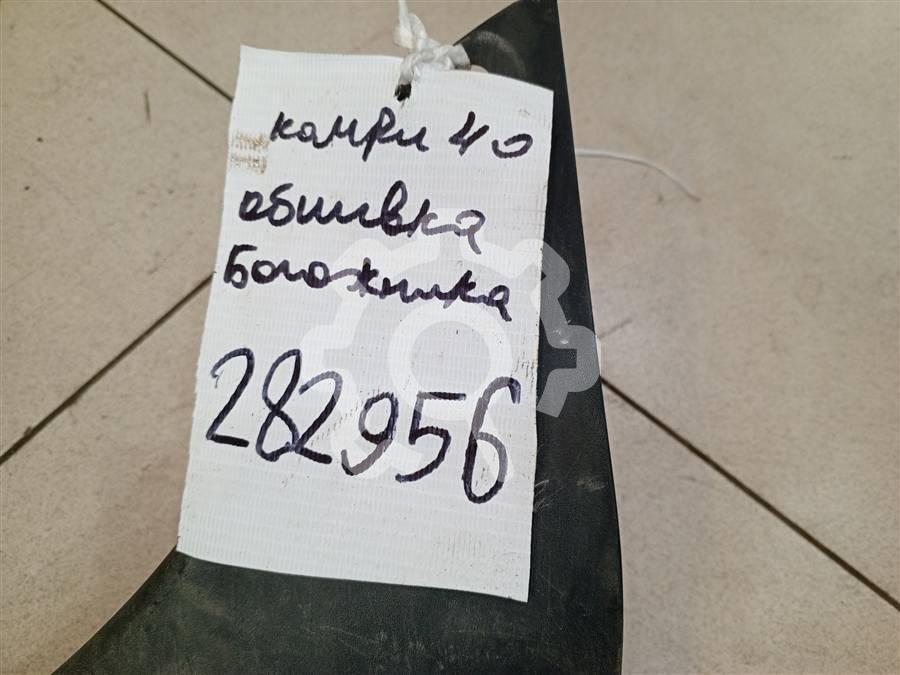 камри 40
обшивка
Богожника
282956